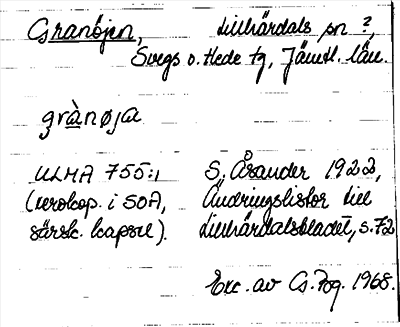 Granöjen, Lillhärdals sn ?,
Svegs o. Hede tg, Jämtl. län.
grànøja
ULMA 755:1 S. Åsander 1922,
(xerokop. i SOA, Ändringslistor till
särsk. kapsel). Lillhärdalsbladet, s. 72
Exc. av Cs. Fog. 1968.